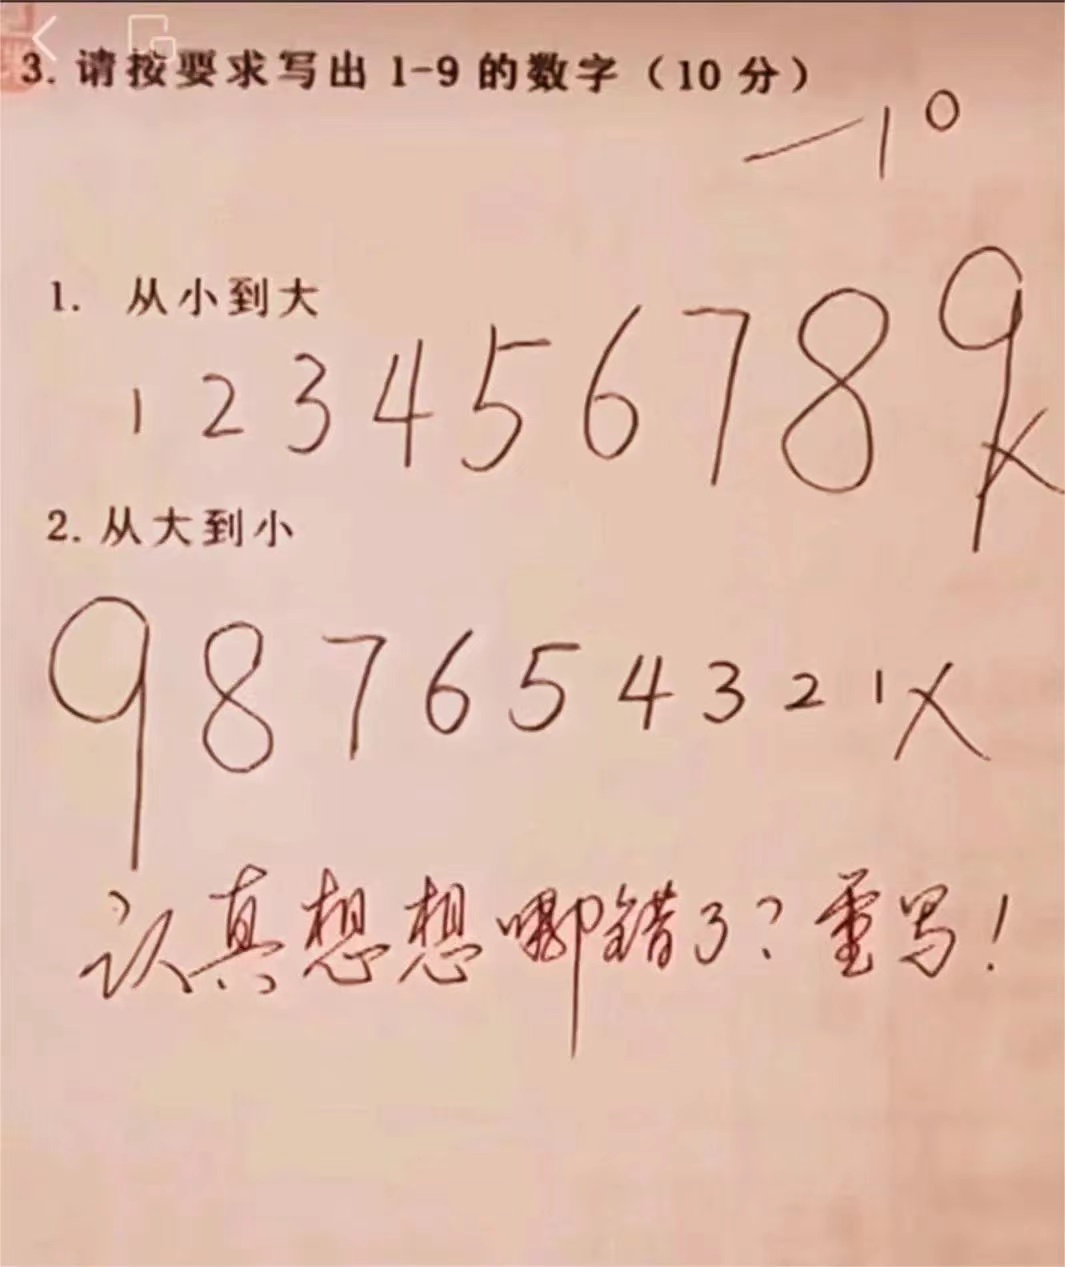 3. 请按要求写出 1-9 的数字（10 分）
-10
1. 从小到大
1 2 3 4 5 6 7 8 9 ×
2. 从大到小
9 8 7 6 5 4 3 2 1 ×
认真想想哪错了？重写！